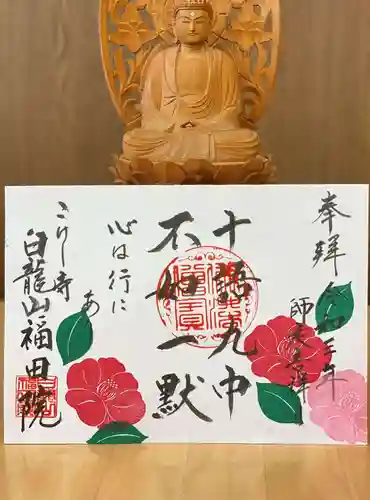 奉拝
令和三年
師走吉祥日
十語九中
不如一默
心は行に
あり
こけし寺
白龍山福田院